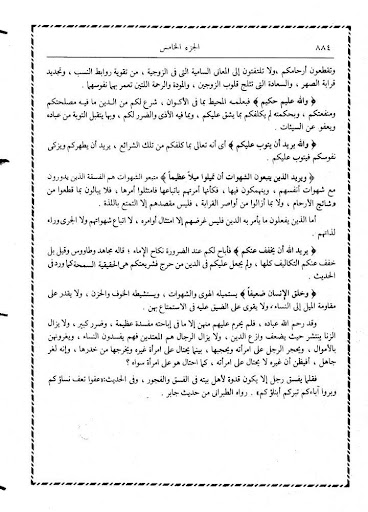 ٨٨٤
الجزء الخامس
وتقطعون أرحامكم ، ولا تلتفتون إلى المعانى السامية التى فى الزوجية ، من تقوية روابط النسب ، وتجديد
قرابة الصهر ، والسعادة التى تثلج قلوب الزوجين ، والمودة والرحمة اللتين تعمر بها نفوسهما .
﴿ والله عليم حكيم ﴾ فبعلمه المحيط بما فى الأكوان ، شرع لكم من الدين ما فيه مصلحتكم
ومنفعتكم ، وبحكمته لم يكلفكم بما يشق عليكم ، وبما فيه الأذى والضرر لكم ، وبها يتقبل التوبة من عباده
ويعفو عن السيئات .
﴿ والله يريد أن يتوب عليكم ﴾ أى أنه تعالى بما كلفكم من تلك الشرائع ، يريد أن يطهركم ويزكى
نفوسكم فيتوب عليكم .
﴿ ويريد الذين يتبعون الشهوات أن تميلوا ميلا عظيما ﴾ متبعو الشهوات هم الفسقة الذين يدورون
مع شهوات أنفسهم ، وينهمكون فيها ، فكأنها أمرتهم باتباعها فامتثلوا أمرها ، فلا يبالون بما قطعوا من
وشائج الأرحام ، ولا بما أزالوا من أواصر القرابة ، فليس مقصدهم إلا التمتع باللذة .
أما الذين يفعلون ما يأمر به الدين فليس غرضهم إلا امتثال أوامره ، لا اتباع شهواتهم ولا الجرى وراء
لذاتهم .
﴿ يريد الله أن يخفف عنكم ﴾ فأباح لكم عند الضرورة نكاح الإماء ؛ قاله مجاهد وطاووس وقيل بل
خفف عنكم التكاليف كلها ، ولم يجعل عليكم فى الدين من حرج فشريعتكم هى الحنيفية السمحة كما ورد فى
الحديث .
﴿ وخلق الإنسان ضعيفا ﴾ يستميله الهوى والشهوات ، ويستشيطه الخوف والحزن ، ولا يقدر على
مقاومة الميل إلى النساء ، ولا يقوى على الضيق عليه فى الاستمتاع بهن .
وقد رحم الله عباده ، فلم يحرم عليهم منهن إلا ما فى إباحته مفسدة عظيمة ، وضرر كبير ، ولا يزال
الزنا ينتشر حيث يضعف وازع الدين ، ولا يزال الرجال هم المعتدين فهم يفسدون النساء ، ويغرونهن
بالأموال ، ويحجر الرجل على امرأته ويحجبها ، بينما يحتال على امرأة غيره ويخرجها من خدرها ، وإنه لغر
جاهل ، أفيظن أن غيره لا يحتال على امرأته ، كما احتال هو على امرأة سواه ؟
فقلما يفسق رجل إلا يكون قدوة لأهل بيته فى الفسق والفجور ، وفى الحديث : «عفوا تعف نساؤكم
وبروا آباءكم تبركم أبناؤكم» . رواه الطبرانى من حديث جابر .